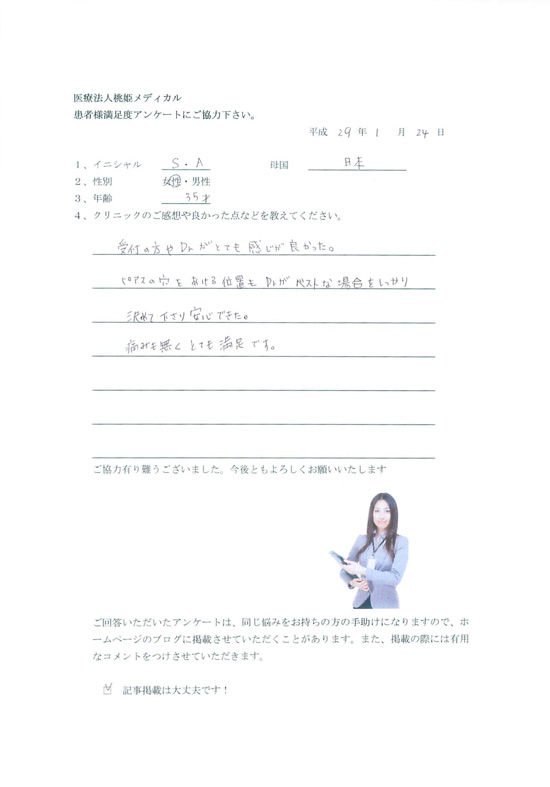 医療法人桃姫メディカル
患者様満足度アンケートにご協力下さい。
平成 29 年 1 月 24 日
1、イニシャル S・A 母国 日本
2、性別 女性・男性
3、年齢 35才
4、クリニックのご感想や良かった点などを教えてください。
受付の方やDrがとても感じが良かった。
ピアスの穴をあける位置もDrがベストな場合をしっかり
決めて下さり安心できた。
痛みも無くとても満足です。
ご協力有り難うございました。今後ともよろしくお願いいたします
ご回答いただいたアンケートは、同じ悩みをお持ちの方の手助けになりますので、ホ
ームページのブログに掲載させていただくことがあります。また、掲載の際には有用
なコメントをつけさせていただきます。
記事掲載は大丈夫です！